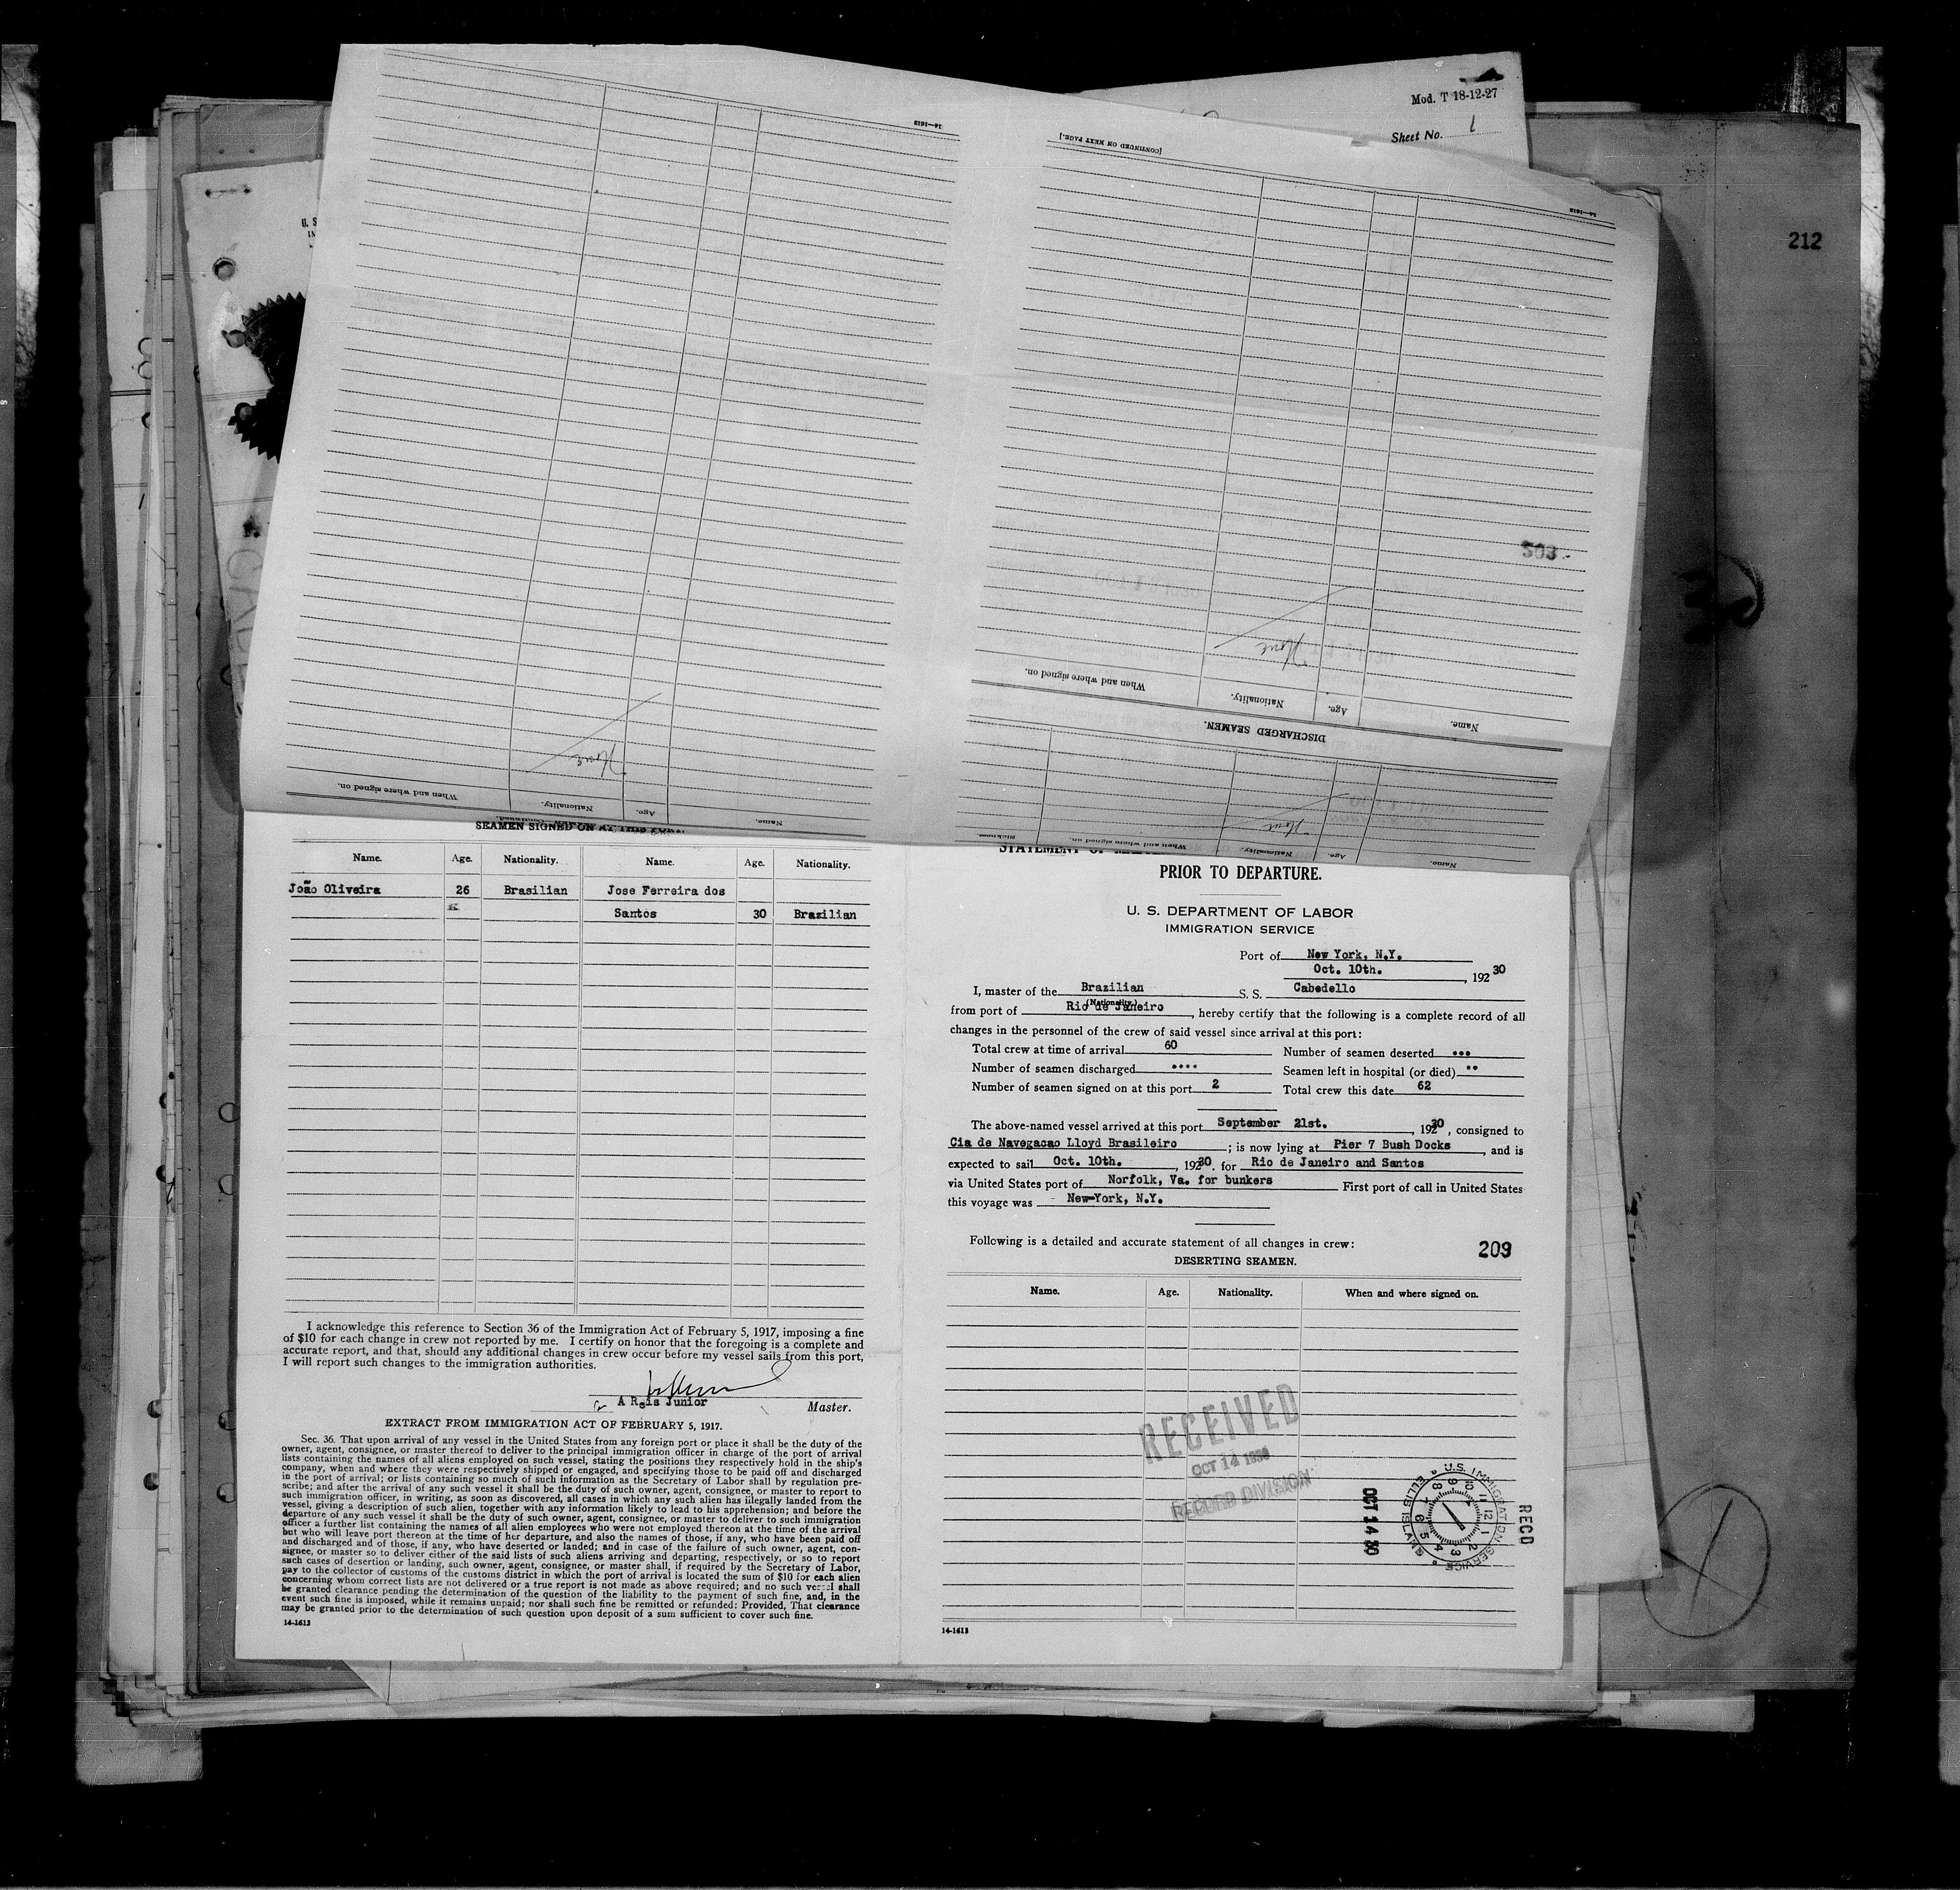 Mod. T 18-12-27
Sheet No. 1
212
14—1613
[CONTINUED ON NEXT PAGE.]
14—1613
503
None
When and where signed on.
Nationality.
Age.
Name.
None
When and where signed on.
Nationality.
Age.
Name.
DISCHARGED SEAMEN.
None
Sickness.
When and where signed on.
Nationality.
Age.
Name.
SEAMEN SIGNED ON AT THIS PORT.
Name. Age. Nationality. Name. Age. Nationality.
João Oliveira 26 Brasilian Jose Ferreira dos
Santos 30 Brazilian
I acknowledge this reference to Section 36 of the Immigration Act of February 5, 1917, imposing a fine
of $10 for each change in crew not reported by me. I certify on honor that the foregoing is a complete and
accurate report, and that, should any additional changes in crew occur before my vessel sails from this port,
I will report such changes to the immigration authorities.
A Regis Junior Master.
EXTRACT FROM IMMIGRATION ACT OF FEBRUARY 5, 1917.
Sec. 36. That upon arrival of any vessel in the United States from any foreign port or place it shall be the duty of the
owner, agent, consignee, or master thereof to deliver to the principal immigration officer in charge of the port of arrival
lists containing the names of all aliens employed on such vessel, stating the positions they respectively hold in the ship's
company, when and where they were respectively shipped or engaged, and specifying those to be paid off and discharged
in the port of arrival; or lists containing so much of such information as the Secretary of Labor shall by regulation pre-
scribe; and after the arrival of any such vessel it shall be the duty of such owner, agent, consignee, or master to report to
such immigration officer, in writing, as soon as discovered, all cases in which any such alien has illegally landed from the
vessel, giving a description of such alien, together with any information likely to lead to his apprehension; and before the
departure of any such vessel it shall be the duty of such owner, agent, consignee, or master to deliver to such immigration
officer a further list containing the names of all alien employees who were not employed thereon at the time of the arrival
but who will leave port thereon at the time of her departure, and also the names of those, if any, who have been paid off
and discharged and of those, if any, who have deserted or landed; and in case of the failure of such owner, agent, con-
signee, or master so to deliver either of the said lists of such aliens arriving and departing, respectively, or so to report
such cases of desertion or landing, such owner, agent, consignee, or master shall, if required by the Secretary of Labor,
pay to the collector of customs of the customs district in which the port of arrival is located the sum of $10 for each alien
concerning whom correct lists are not delivered or a true report is not made as above required; and no such vessel shall
be granted clearance pending the determination of the question of the liability to the payment of such fine, and, in the
event such fine is imposed, while it remains unpaid; nor shall such fine be remitted or refunded: Provided, That clearance
may be granted prior to the determination of such question upon deposit of a sum sufficient to cover such fine.
14-1613
STATEMENT OF
PRIOR TO DEPARTURE.
U. S. DEPARTMENT OF LABOR
IMMIGRATION SERVICE
Port of New York, N.Y.
Oct. 10th., 192 30
I, master of the Brazilian S. S. Cabedello
(Nationality)
from port of Rio de Janeiro, hereby certify that the following is a complete record of all
changes in the personnel of the crew of said vessel since arrival at this port:
Total crew at time of arrival 60 Number of seamen deserted •••
Number of seamen discharged •••• Seamen left in hospital (or died) ••
Number of seamen signed on at this port 2 Total crew this date 62
The above-named vessel arrived at this port September 21st., 1920 30, consigned to
Cia de Navegacao Lloyd Brasileiro; is now lying at Pier 7 Bush Docks, and is
expected to sail Oct. 10th., 192 30. for Rio de Janeiro and Santos
via United States port of Norfolk, Va. for bunkers First port of call in United States
this voyage was New-York, N.Y.
Following is a detailed and accurate statement of all changes in crew:
209
DESERTING SEAMEN.
Name. Age. Nationality. When and where signed on.
RECEIVED
OCT 14 1930
RECORD DIVISION
OCT 14 30
U.S. IMMIGRATION SERVICE • ELLIS ISLAND •
REC'D
14-1613